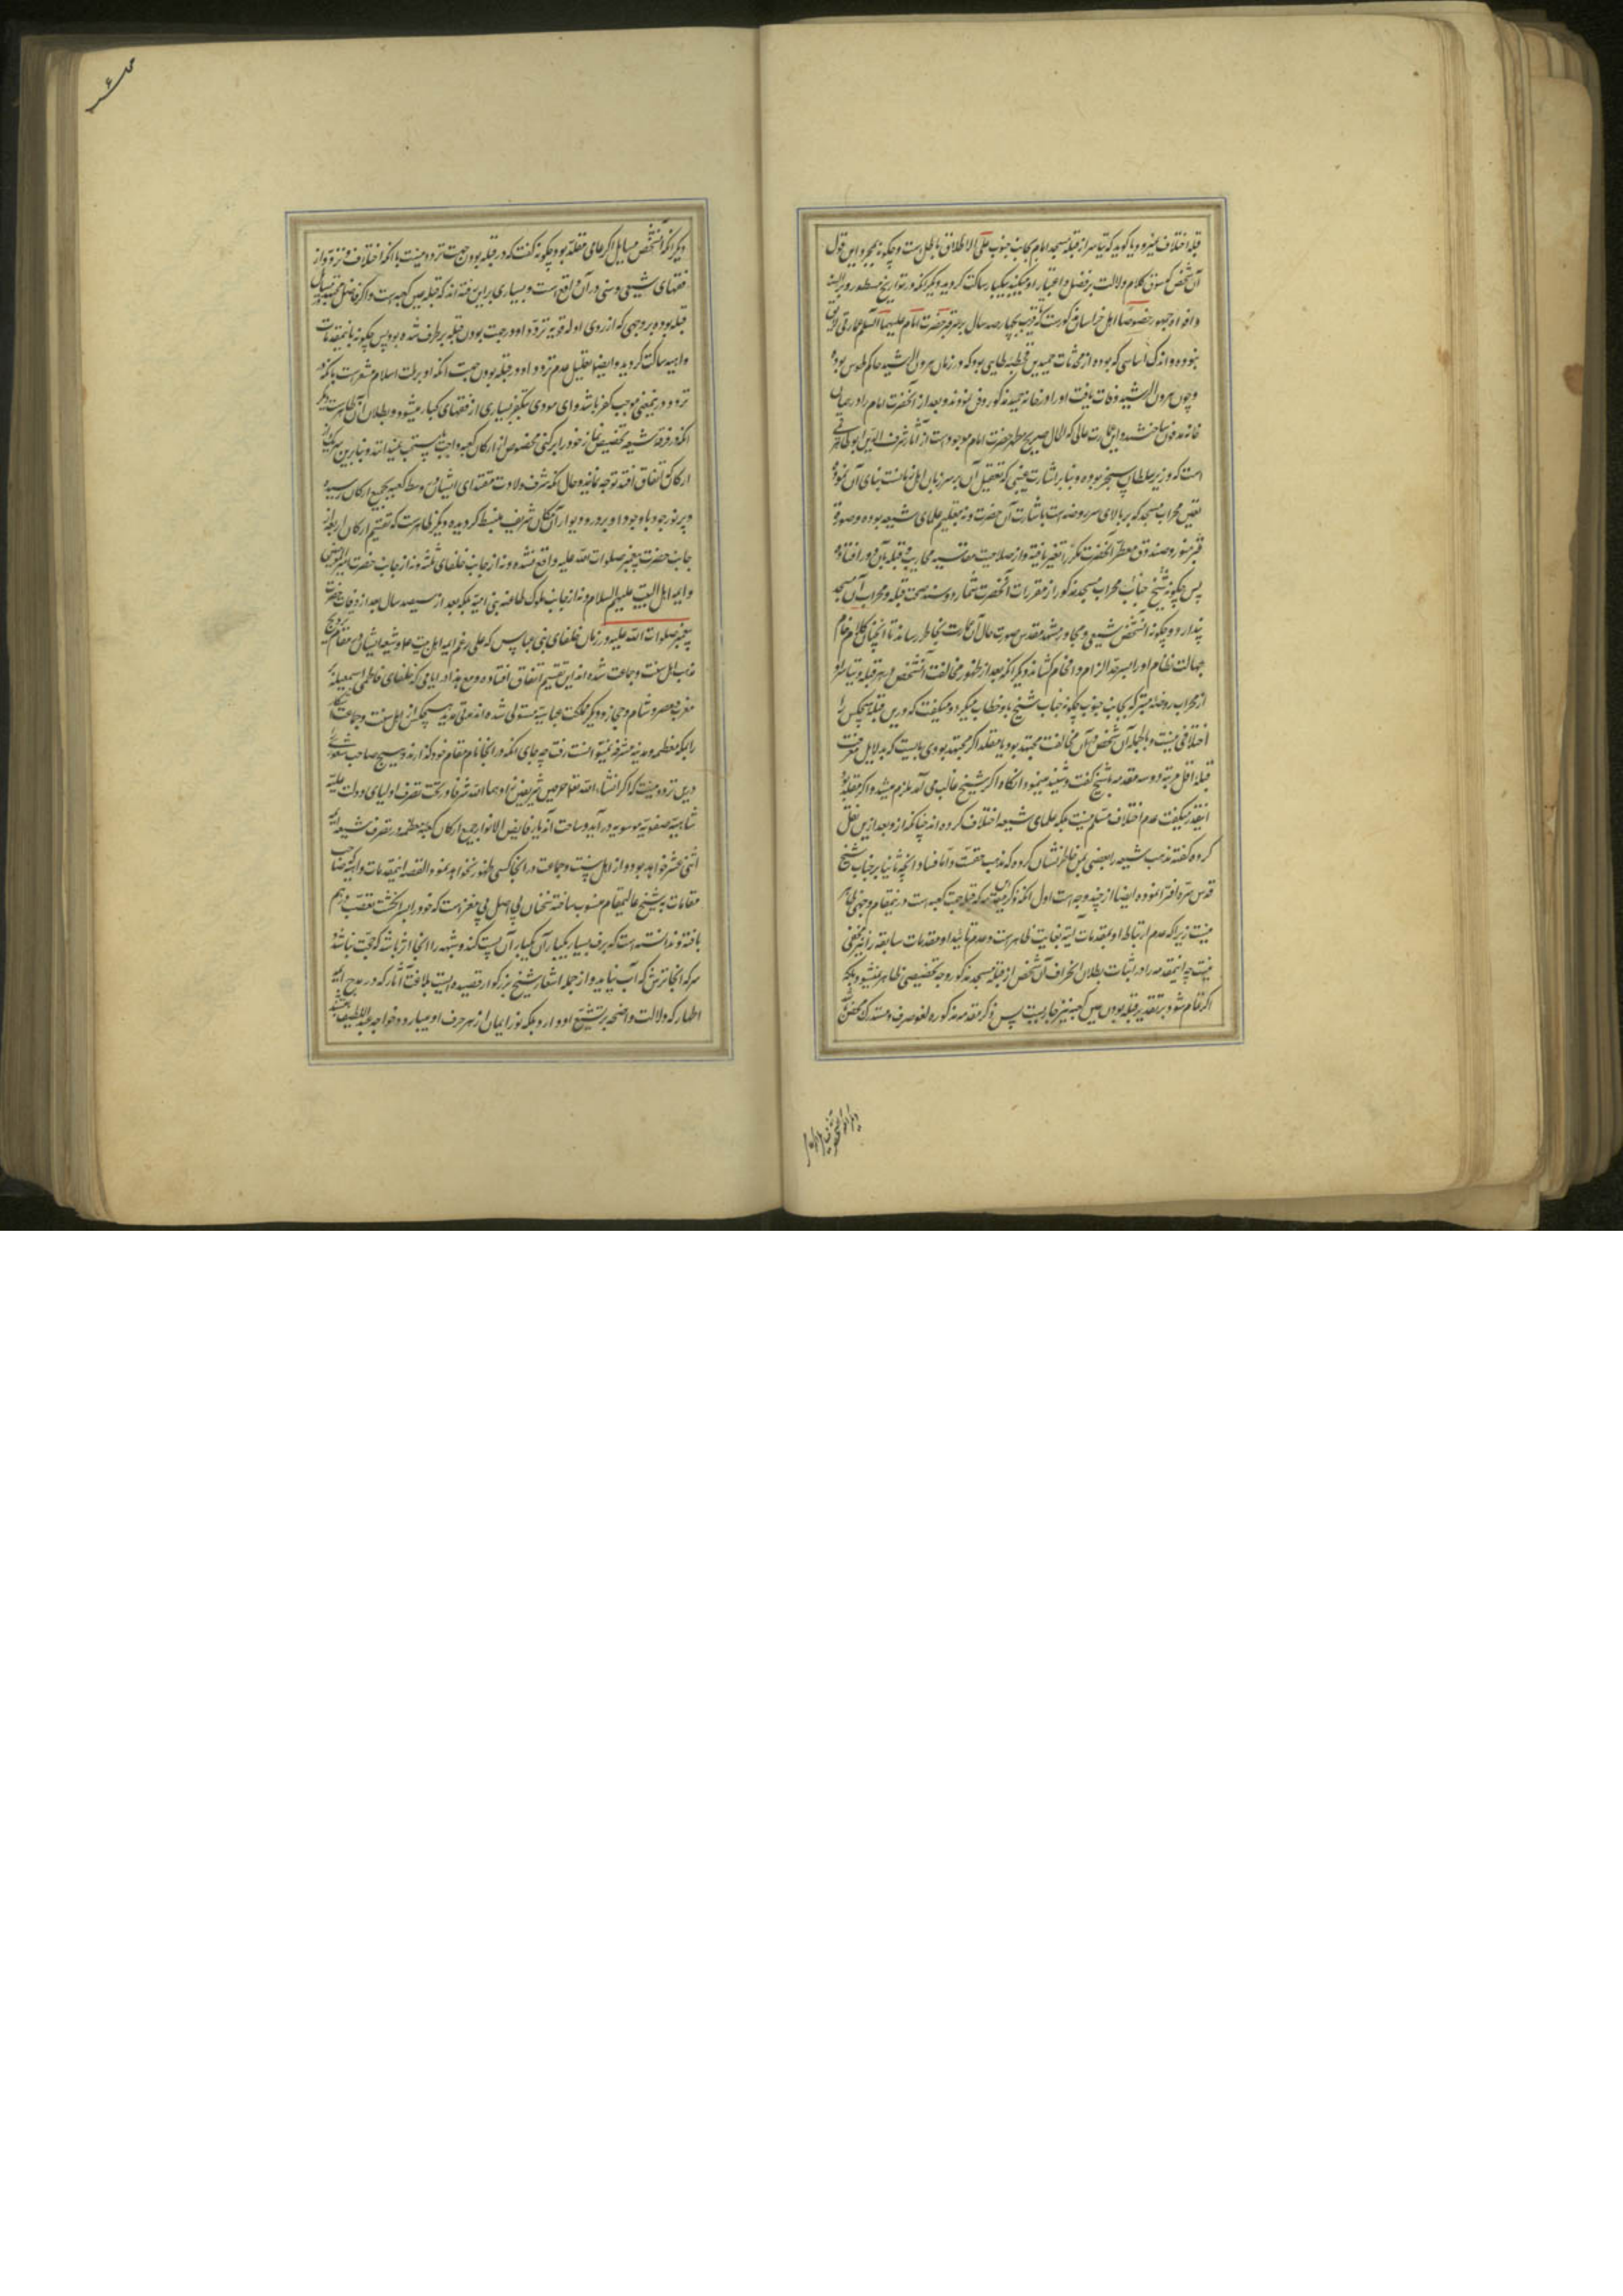 قبله اختلاف میرود یا گوید که تیاسر از قبله مسجد امام بجانب جنوب علی الاطلاق باطل است و چگونه بمجرد این قول
آن شخص که سوق کلام دلالت بر فضل و اعتبار او میکند بیکبار ساکت گردید و دیگر آنکه در تواریخ مسطور و بر السنه
و افواه جمهور خصوصا اهل خراسان مذکورست که قریب بچهار صد سال بر سر قبر حضرت امام علیه السلام عمارتی لایق
نبوده و اندک اساسی که بوده از محدثات حمید بن قحطبه طایی بود که در زمان هرون الرشید حاکم طوس بوده
و چون هرون الرشید وفات یافت او را در خانه حمید مذکور دفن نمودند و بعد از آن حضرت امام را در همان
خانه مدفون ساختند و این عمارت عالی که الحال ضریح مطهر حضرت امام موجود است از آثار شرف الدین ابوطاهر قمی
است که وزیر سلطان سنجر بوده و بنابر اشارت غیبی که تفصیل آن بر سر زبان اهل زمانست بنای آن نموده
تعیین محراب مسجد که بر بالای سر روضه است باشارت آن حضرت و نه بتعلیم علمای شیعه بوده و صورت
قبر منور و صندوق معطر آنحضرت مکرر تغیر یافته و از صلاحیت مقایسه محاریب قبله بآن دور افتاده
پس چگونه شیخ جناب محراب مسجد مذکور از مقررات آنحضرت شمارد و سند صحت قبله و محراب آن مسجد
پندارد و چگونه آن شخص شیعی و مجاور مشهد مقدس صورت حال آن عمارت بخاطر رساند تا آنچنان کلام خام
جهالت نظام او را بسر حد الزام و افحام کشاند دیگر آنکه بعد از ظهور مخالفت آن شخص در سر قبله و تیاسر او
از محراب روضه متبرکه بجانب جنوب چگونه جناب شیخ با او خطاب میکرد و میگفت که درین قبله هیچکس را
اختلافی نیست و بالجمله آن شخص در آن مخالفت مجتهد بود یا مقلد اگر مجتهد بودی بایست که بدلایل معرفت
قبله اقل مرتبه دو سه مقدمه با شیخ گفت و شنید مینمود آنگاه اگر شیخ غالب می آمد ملزم میشد و اگر مقلد بود
اینقدر میگفت عدم اختلاف مسلم نیست بلکه علمای شیعه اختلاف کرده اند چنانکه از و بعد ازین نقل
کرده گفته مذهب شیعه را بعضی بمن خاطرنشان کرده که مذهب حقست و اما فساد آنچه ثانیا بر جناب شیخ
قدس سره افترا نموده ایضا از چند وجه است اول آنکه ذکر مقدمه که قبله جهت کعبه است درینمقام وجهی ظاهر
نیست زیرا که عدم ارتباط او بمقدمات آتیه بغایت ظاهرست و عدم تائید او مقدمات سابقه را نیز مخفی
نیست چه اینمقدمه را در اثبات بطلان انحراف آن شخص از قبله مسجد مذکور وجه تخصیصی ظاهر نمیشود بلکه
اگر تمام شود بر تقدیر قبله بودن عین کعبه نیز جاریست پس ذکر مقدمه مذکوره لغو صرف و مستدرک محض باشد
دیگر آنکه آن شخص مسایل اگر عامی مقلد بود چگونه گفت که در قبله بودن جهت تردد نیست با آنکه اختلاف و تردد از
فقهای شیعی و سنی در آن واقع است و بسیاری بر این رفته اند که قبله عین کعبه است و اگر فاضل
قبله بوده بر وجهی که از روی ادله قویه تردد او در جهت بودن قبله برطرف شده بود پس چگونه باینمقدمات
واهیه ساکت گردید و ایضا تعلیل عدم تردد او در قبله بودن جهت آنکه او بر ملت اسلام مشعرست بآنکه
تردد در ینمعنی موجب کفر باشد و این مودی بتکفیر بسیاری از فقهای کبار میشود و بطلان آن ظاهرست دیگر
آنکه فرقه شیعه تخصیص نماز خود را برکنی مخصوص از ارکان کعبه واجب یا مستحب نمیدانند و بنابرین
ارکان که اتفاق افتد توجه نمایند و حال آنکه شرف ولادت مقتدای ایشان در وسط کعبه بجمیع ارکان رسیده
و پرتو جود با وجود او بر در و دیوار آن مکان شریف منبسط گردیده دیگر ظاهرست که تقسیم ارکان اربعه از
جانب حضرت پیغمبر صلوات الله علیه واقع نشده و نه از جانب خلفای ثلثه و نه از جانب حضرت امیرالمومنین
و ایمه اهل البیت علیهم السلام و نه از جانب ملوک طاعنه بنی امیه بلکه بعد از سیصد سال بعد از وفات حضرت
پیغمبر صلوات الله علیه در زمان خلفای بنی عباس که علی رغم ایمه اهل بیت علیهم و شیعه ایشان در مقام ترویج
مذهب اهل سنت و جماعت شده اند این تقسیم اتفاق افتاده و مع هذا در ایامی که خلفای فاطمی اسمعیلیه
مغرب و مصر و شام و حجاز و دیگر مملکت عباسیه مستولی شده اند مدتی مدید هیچکس از اهل سنت و جماعت
را بمکه معظمه و مدینه مشرفه نمیتوانست رفت چه جای آنکه در آنجا نام مقام خود گذارند و هیچ صاحب شعوری
درین تردد نیست که اگر انشاء الله تعالی حرمین شریفین زادهما الله شرفا در تحت تصرف اولیای دولت علیه
شاهیه صفویه موسویه درآید و ساحت آن دیار فایض الانوار جمیع ارکان کعبه معظمه در تصرف شیعه ایمه
اثنی عشر خواهد بود و از اهل سنت و جماعت در آنجا کسی ظهور نخواهد نمود القصه اینمقدمات واهیه که صاحب
مقامات بشیخ عالیمقام منسوب ساخته سخنان بی اصل بی مغز است که خود را بسر انگشت تعصب درهم
بافته و ندانسته است که برف بسیار یکبار آن یکبار آن پست کند و شبهه را آنجا اثر باشد که حجت نباشد
سرکه آنجا ترش که آب نیاید و از جمله اشعار شیخ بزرگوار قصیده ایست بلاغت آثار که در مدح ایمه
اطهار که دلالت واضحه بر تشیع او دارد بلکه نور ایمان از هر حرف او میبارد و خواجه عبداللطیف
دیگر آنکه آن شخص